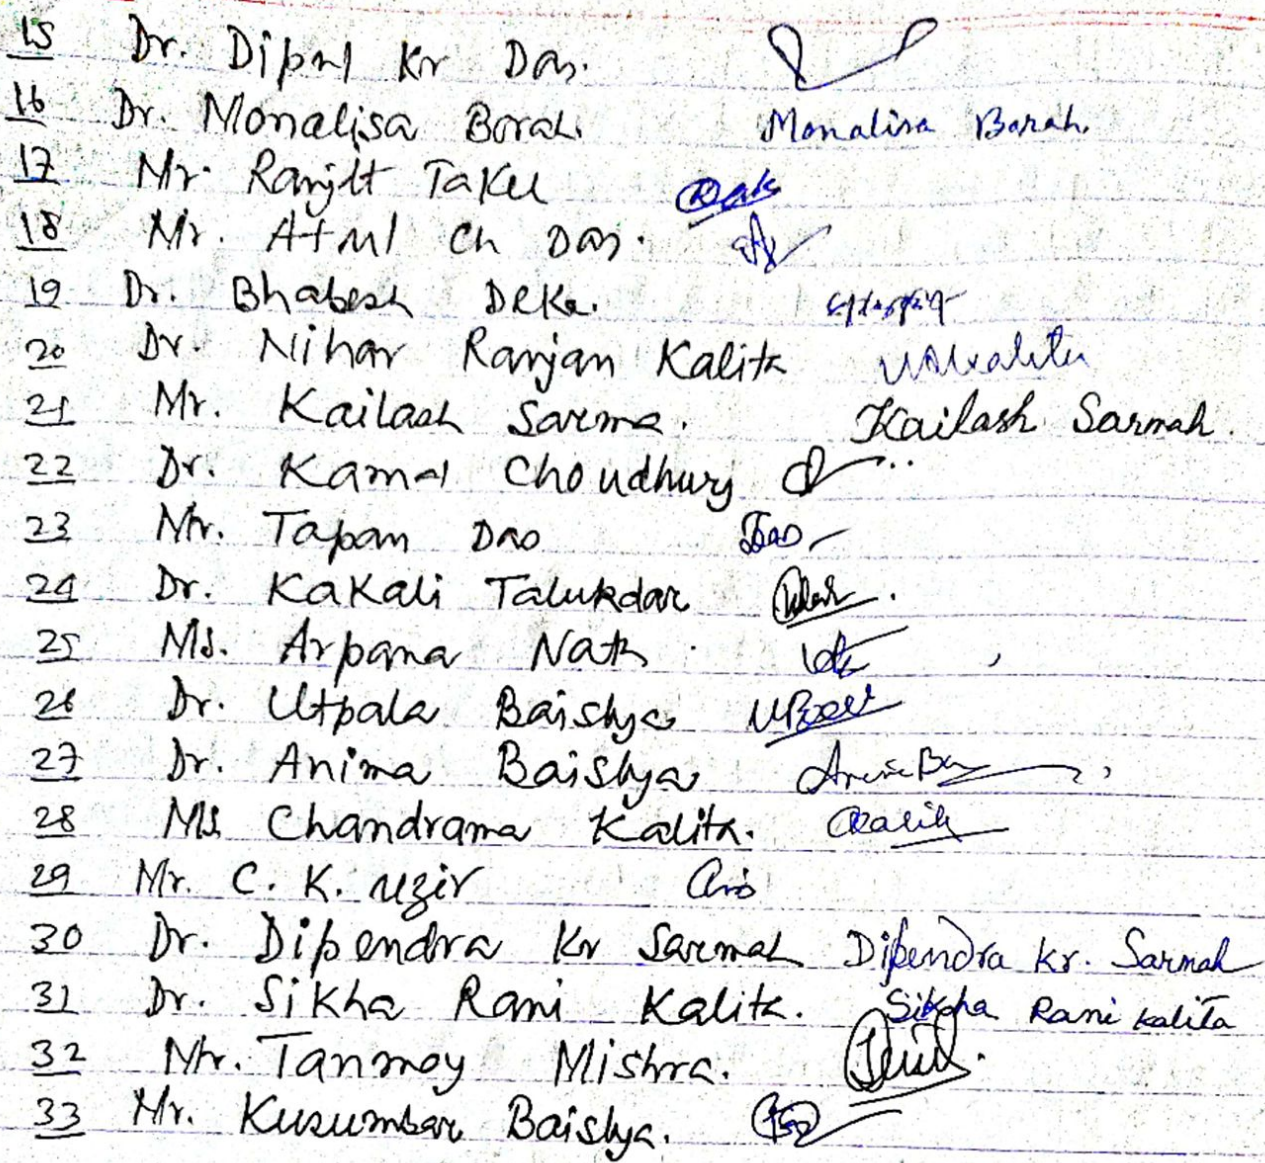 15 Dr. Dipul Kr Das.
16 Dr. Monalisa Borah. Monalisa Borah.
17 Mr. Ranjit Taku
18 Mr. Atul Ch Das.
19 Dr. Bhabesh Deka.
20 Dr. Nihar Ranjan Kalita
21 Mr. Kailash Sarma. Kailash Sarmah.
22 Dr. Kamal Choudhury
23 Mr. Tapan Das Das
24 Dr. Kakali Talukdar
25 Ms. Arpana Nath
26 Dr. Utpala Baishya
27 Dr. Anima Baishya
28 Ms Chandrama Kalita.
29 Mr. C. K. Uzir
30 Dr. Dipendra Kr Sarmah Dipendra Kr. Sarmah
31 Dr. Sikha Rani Kalita. Sikha Rani Kalita
32 Mr. Tanmoy Mishra.
33 Mr. Kusumbar Baishya.